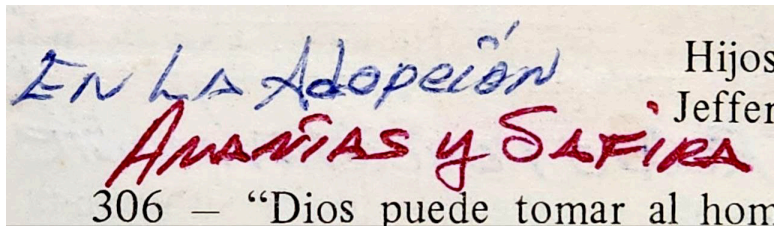 Hijos
EN LA Adopción
Jeffer
ANANÍAS y SAFIRA
306 – “Dios puede tomar al hom